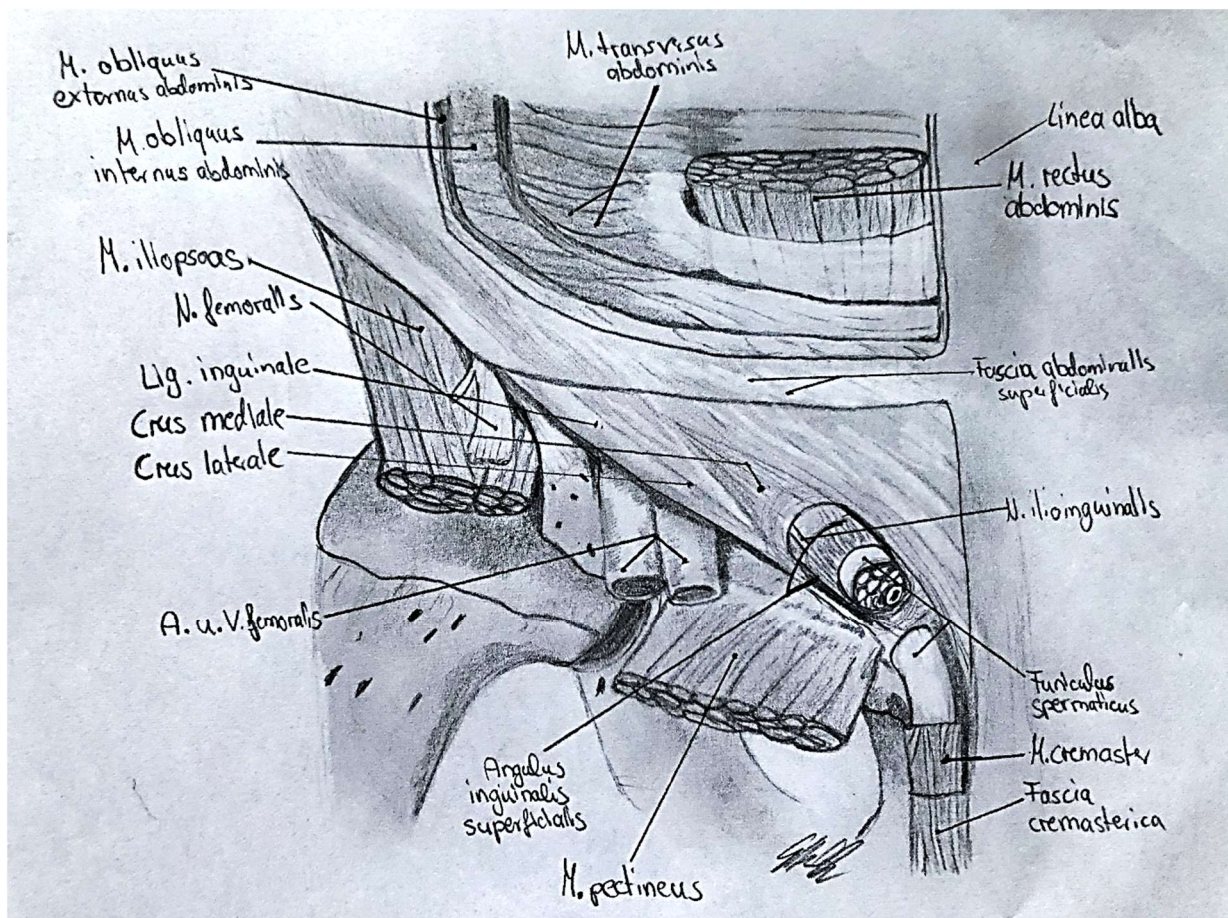 M. obliquus
externus abdominis
M. obliquus
internus abdominis
M. transversus
abdominis
Linea alba
M. rectus
abdominis
M. illopsoas
N. femoralls
Lig. inguinale
Crus mediale
Crus laterale
A. u. V. femoralis
Fascia abdominalls
superficialis
N. ilioinguinalls
Funiculus
spermaticus
M. cremaster
Fascia
cremasterica
Angulus
inguinalis
superficialis
M. pectineus